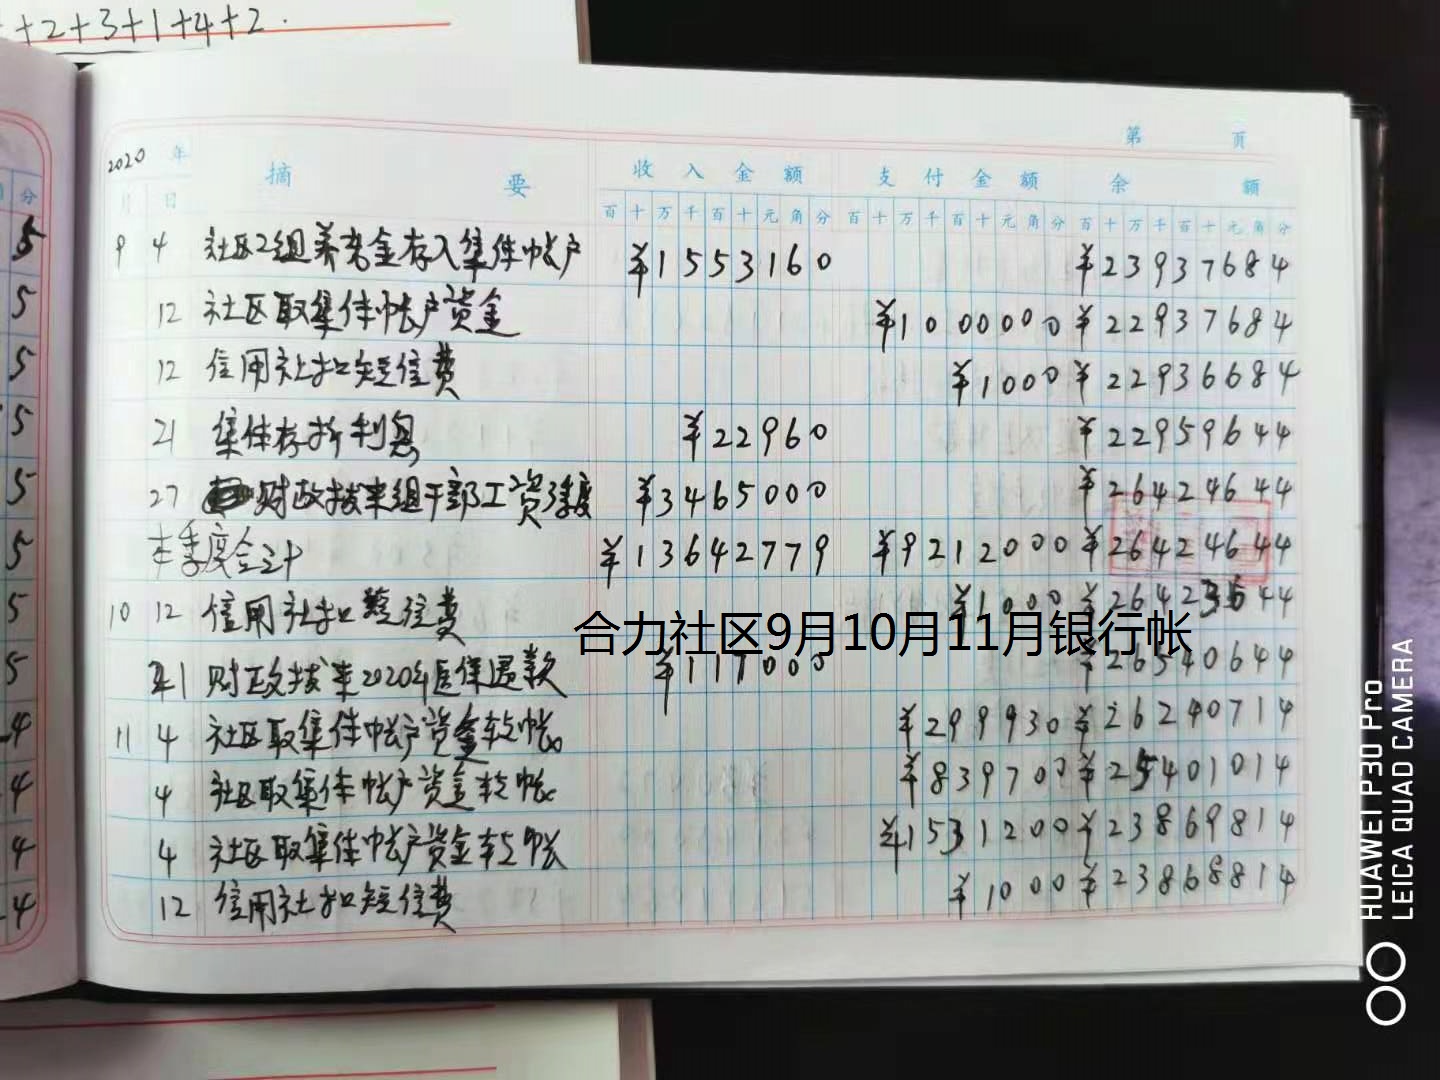 +2+3+1+4+2.
第 页
2020 年 摘 要 收入金额 支付金额 余 额
月 日 百十万千百十元角分 百十万千百十元角分 百十万千百十元角分
9 4 社区2组养老金存入集体帐户 ¥1553160 ¥23937684
12 社区取集体帐户资金 ¥1000000 ¥22937684
12 信用社扣短信费 ¥1000 ¥22936684
21 集体存折利息 ¥22960 ¥22959644
27 财政拨来组干部工资3季度 ¥3465000 ¥26424644
本季度合计 ¥13642779 ¥9212000 ¥26424644
10 12 信用社扣短信费 ¥1000 ¥26423644
21 财政拨来2020年医保退款 ¥117000 ¥26540644
合力社区9月10月11月银行帐
11 4 社区取集体帐户资金转帐 ¥299930 ¥26240714
4 社区取集体帐户资金转帐 ¥839700 ¥25401014
4 社区取集体帐户资金转帐 ¥1531200 ¥23869814
12 信用社扣短信费 ¥1000 ¥23868814
分
5
5
5
5
5
5
5
5
4
4
4
4
HUAWEI P30 Pro
LEICA QUAD CAMERA